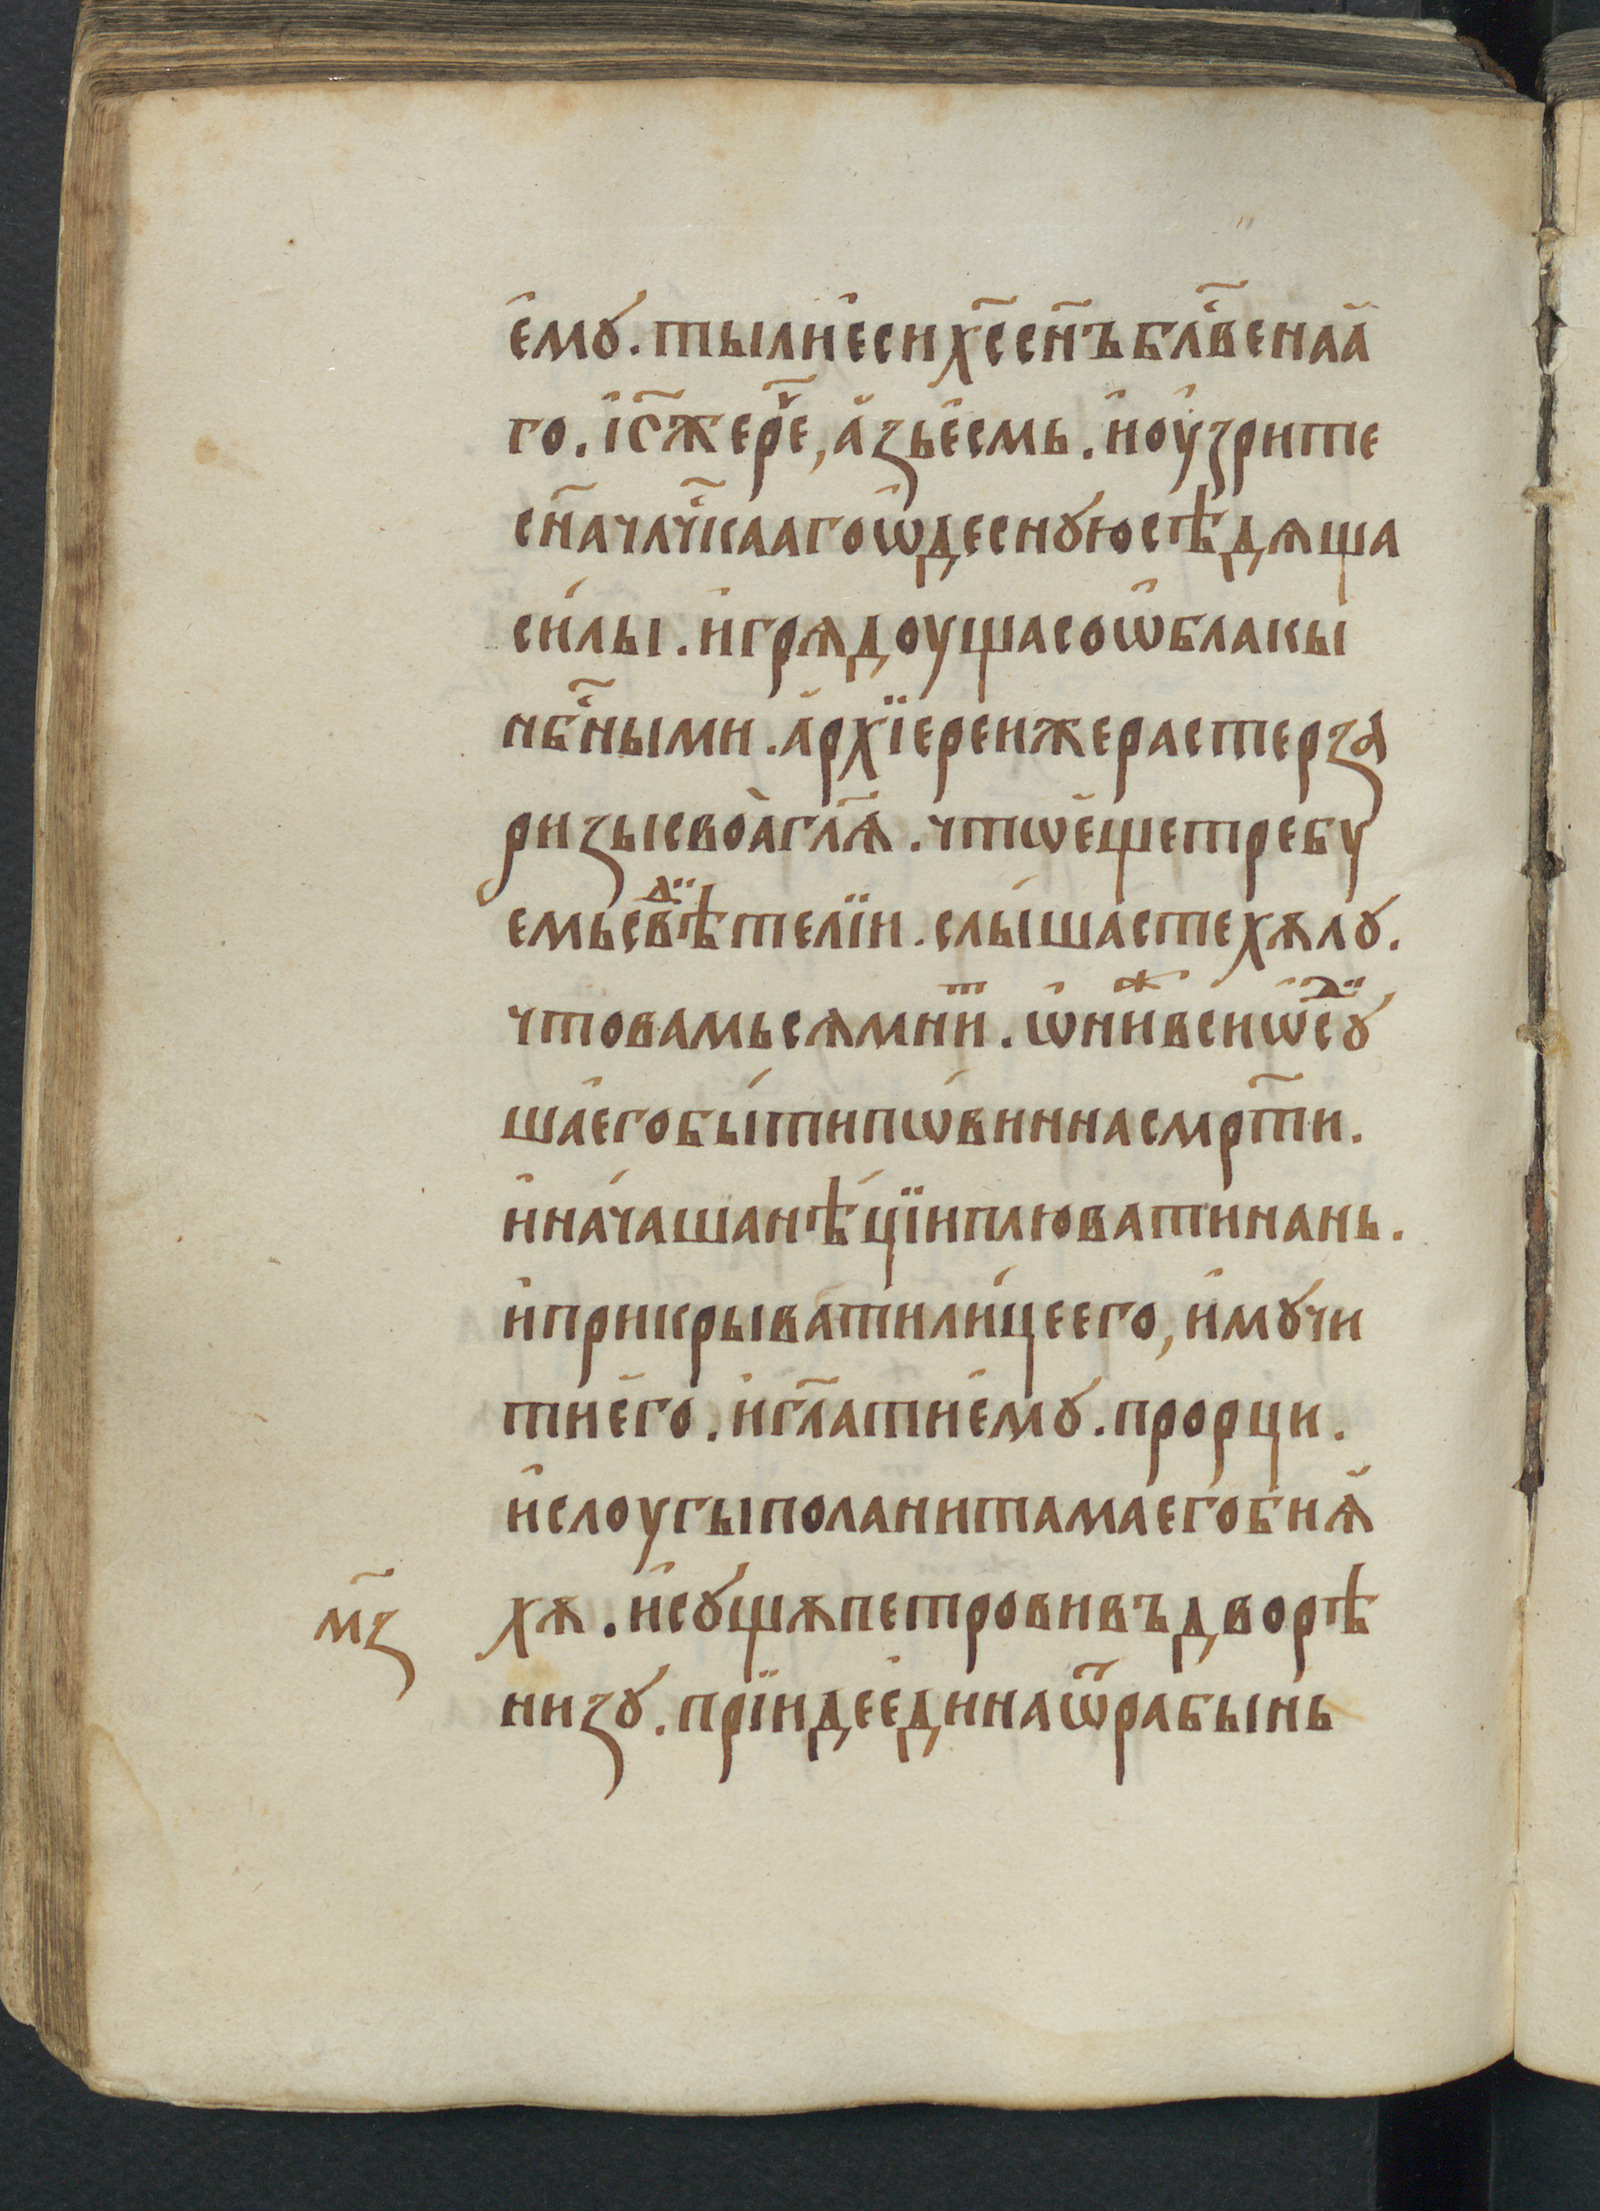 е҆мꙋ́. ты ли е҆си х҃с сн҃ъ бл҇вена̀а
го. і҆с҃ же рече҇, а҆зь е҆смь. и҆ оу҆зрите
сн҃а чл҃ч҇каа го ѡ҆деснꙋ́ю сѣдѧща
си́лы. и҆ грѧдоуща со ѡ҆блакы
нб҇ными. а҆рхїереи же растерза
ризы своа̀ гл҃ѧ. что̀ е҆ще требу
емь свѣⷣтелїи. слы́шасте хѫлꙋ.
что вамь сѧ мниⷮ. ѡ҆ниⷤ вси ѡ҆сꙋⷣ
ша е҆го бы́ти пѡви́нна смрт҃и.
и҆ нача́ша нѣ́цїи плювати нань.
и҆ прикрывати лице́ его, и҆ мꙋчи
ти е҆го. и҆ гл҃ати е҆мꙋ́. прорци.
и҆ слоугы по ланитама его бїѧ̀
хѫ. и҆ сꙋ́щꙋ петрови въ дворѣ
м҃з
низꙋ. прїиде е҆дина ѿ рабынь